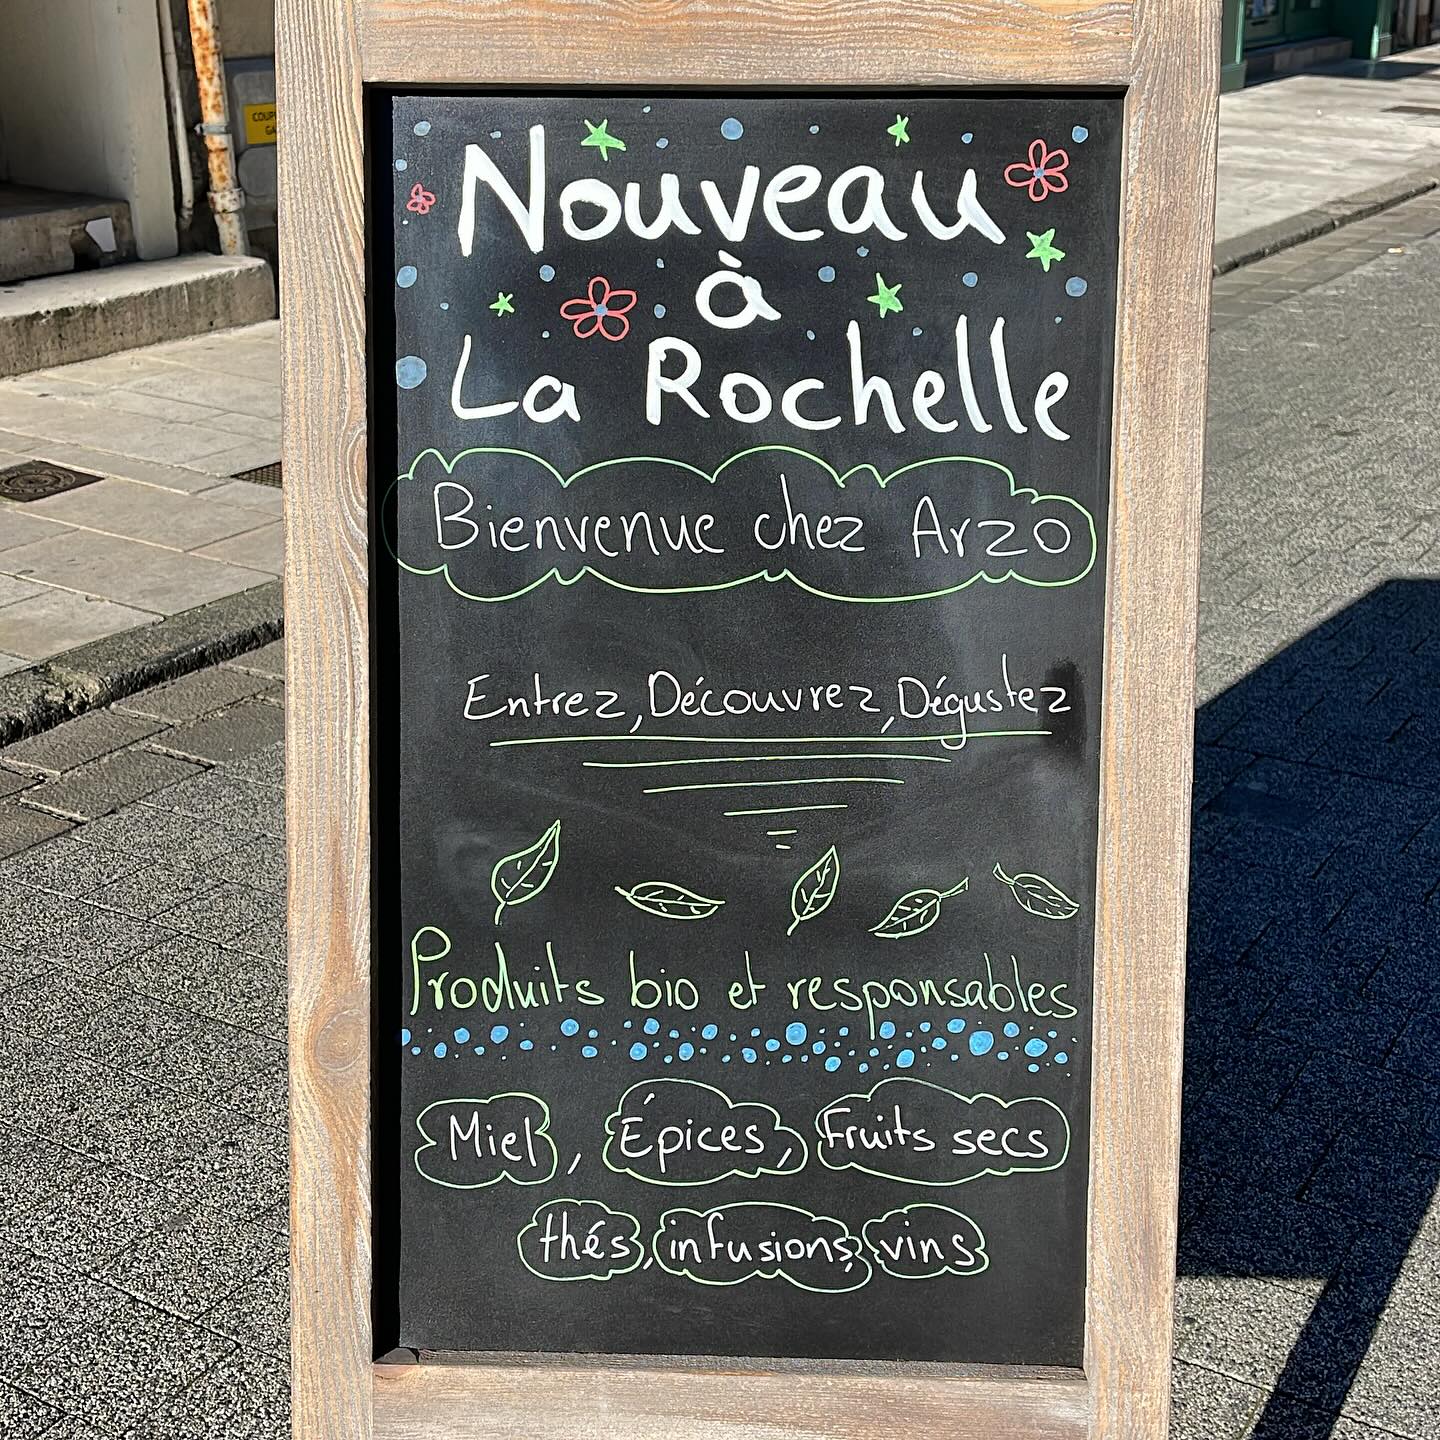 Nouveau
à
La Rochelle
Bienvenue chez Arzo
Entrez, Découvrez, Dégustez
Produits bio et responsables
Miel, Épices, Fruits secs
thés, infusions, vins